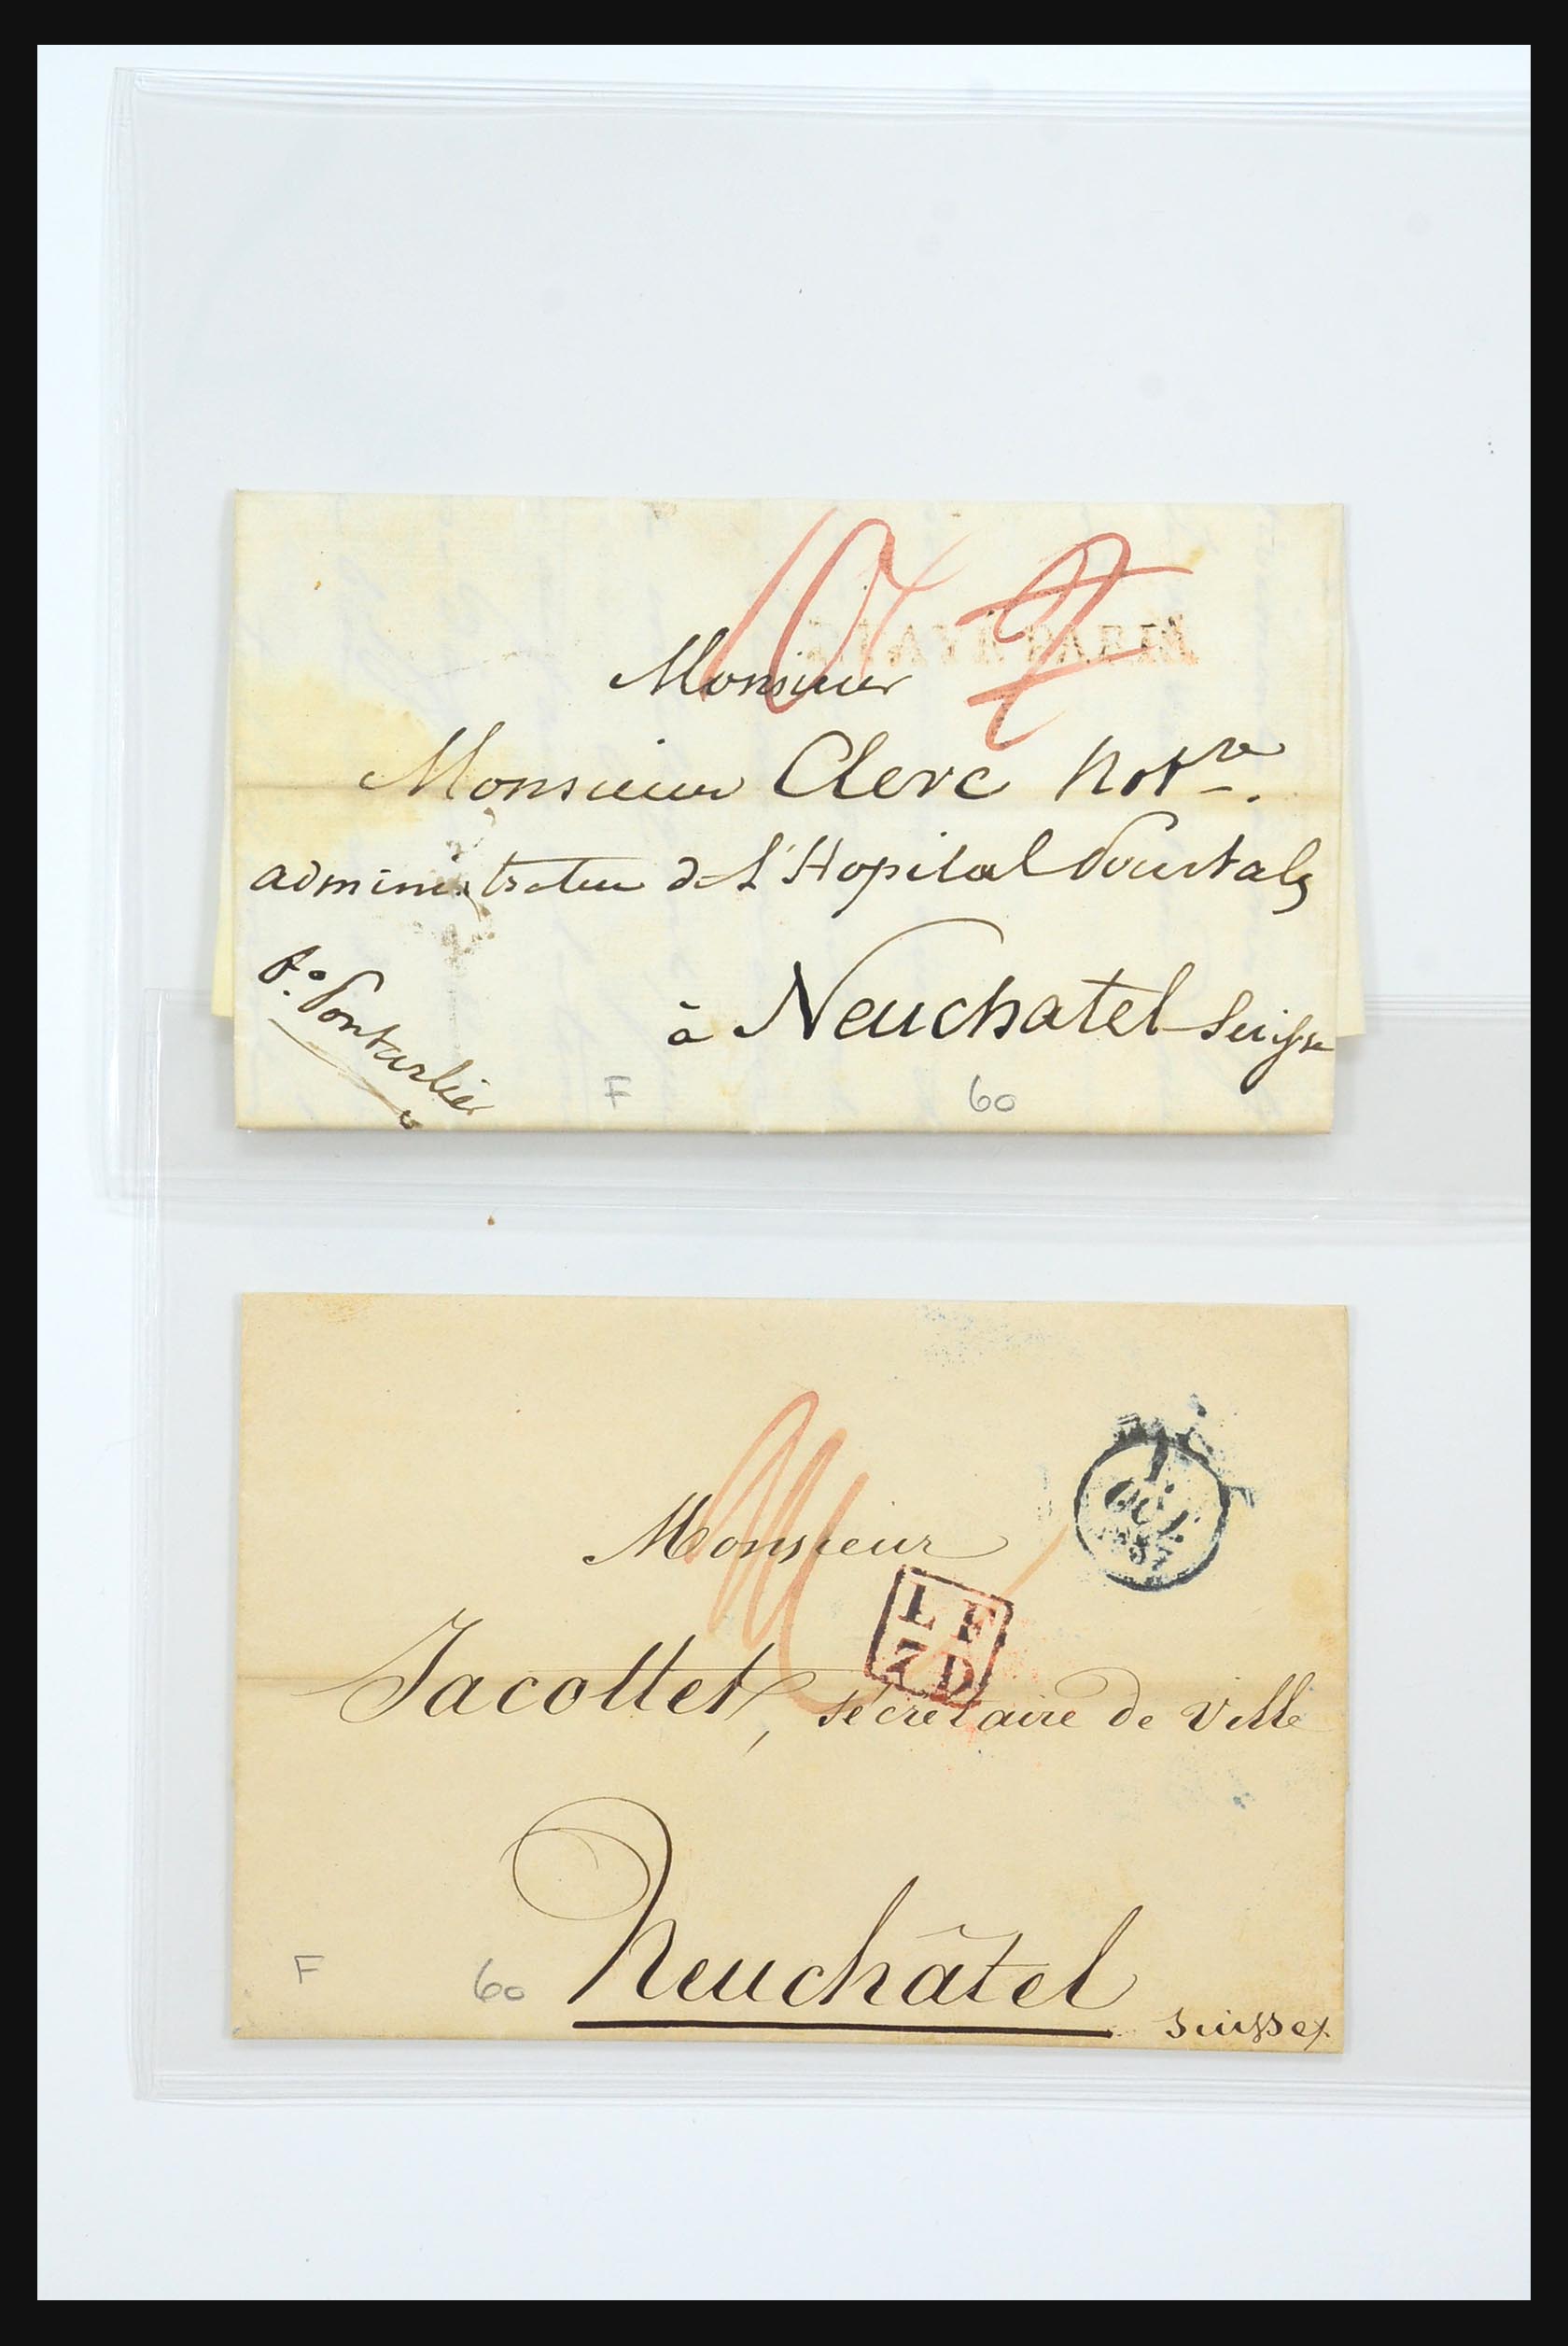 Monsieur
Monsieur Clerc Notre.
administrateur de L'Hopital Pourtales
à Neuchatel Suisse
po. Pontarlier
F 60
1
OCT
1837
Monsieur
L F
7 D
Jacottet, secretaire de Ville
Neuchâtel
Suisse
F 60